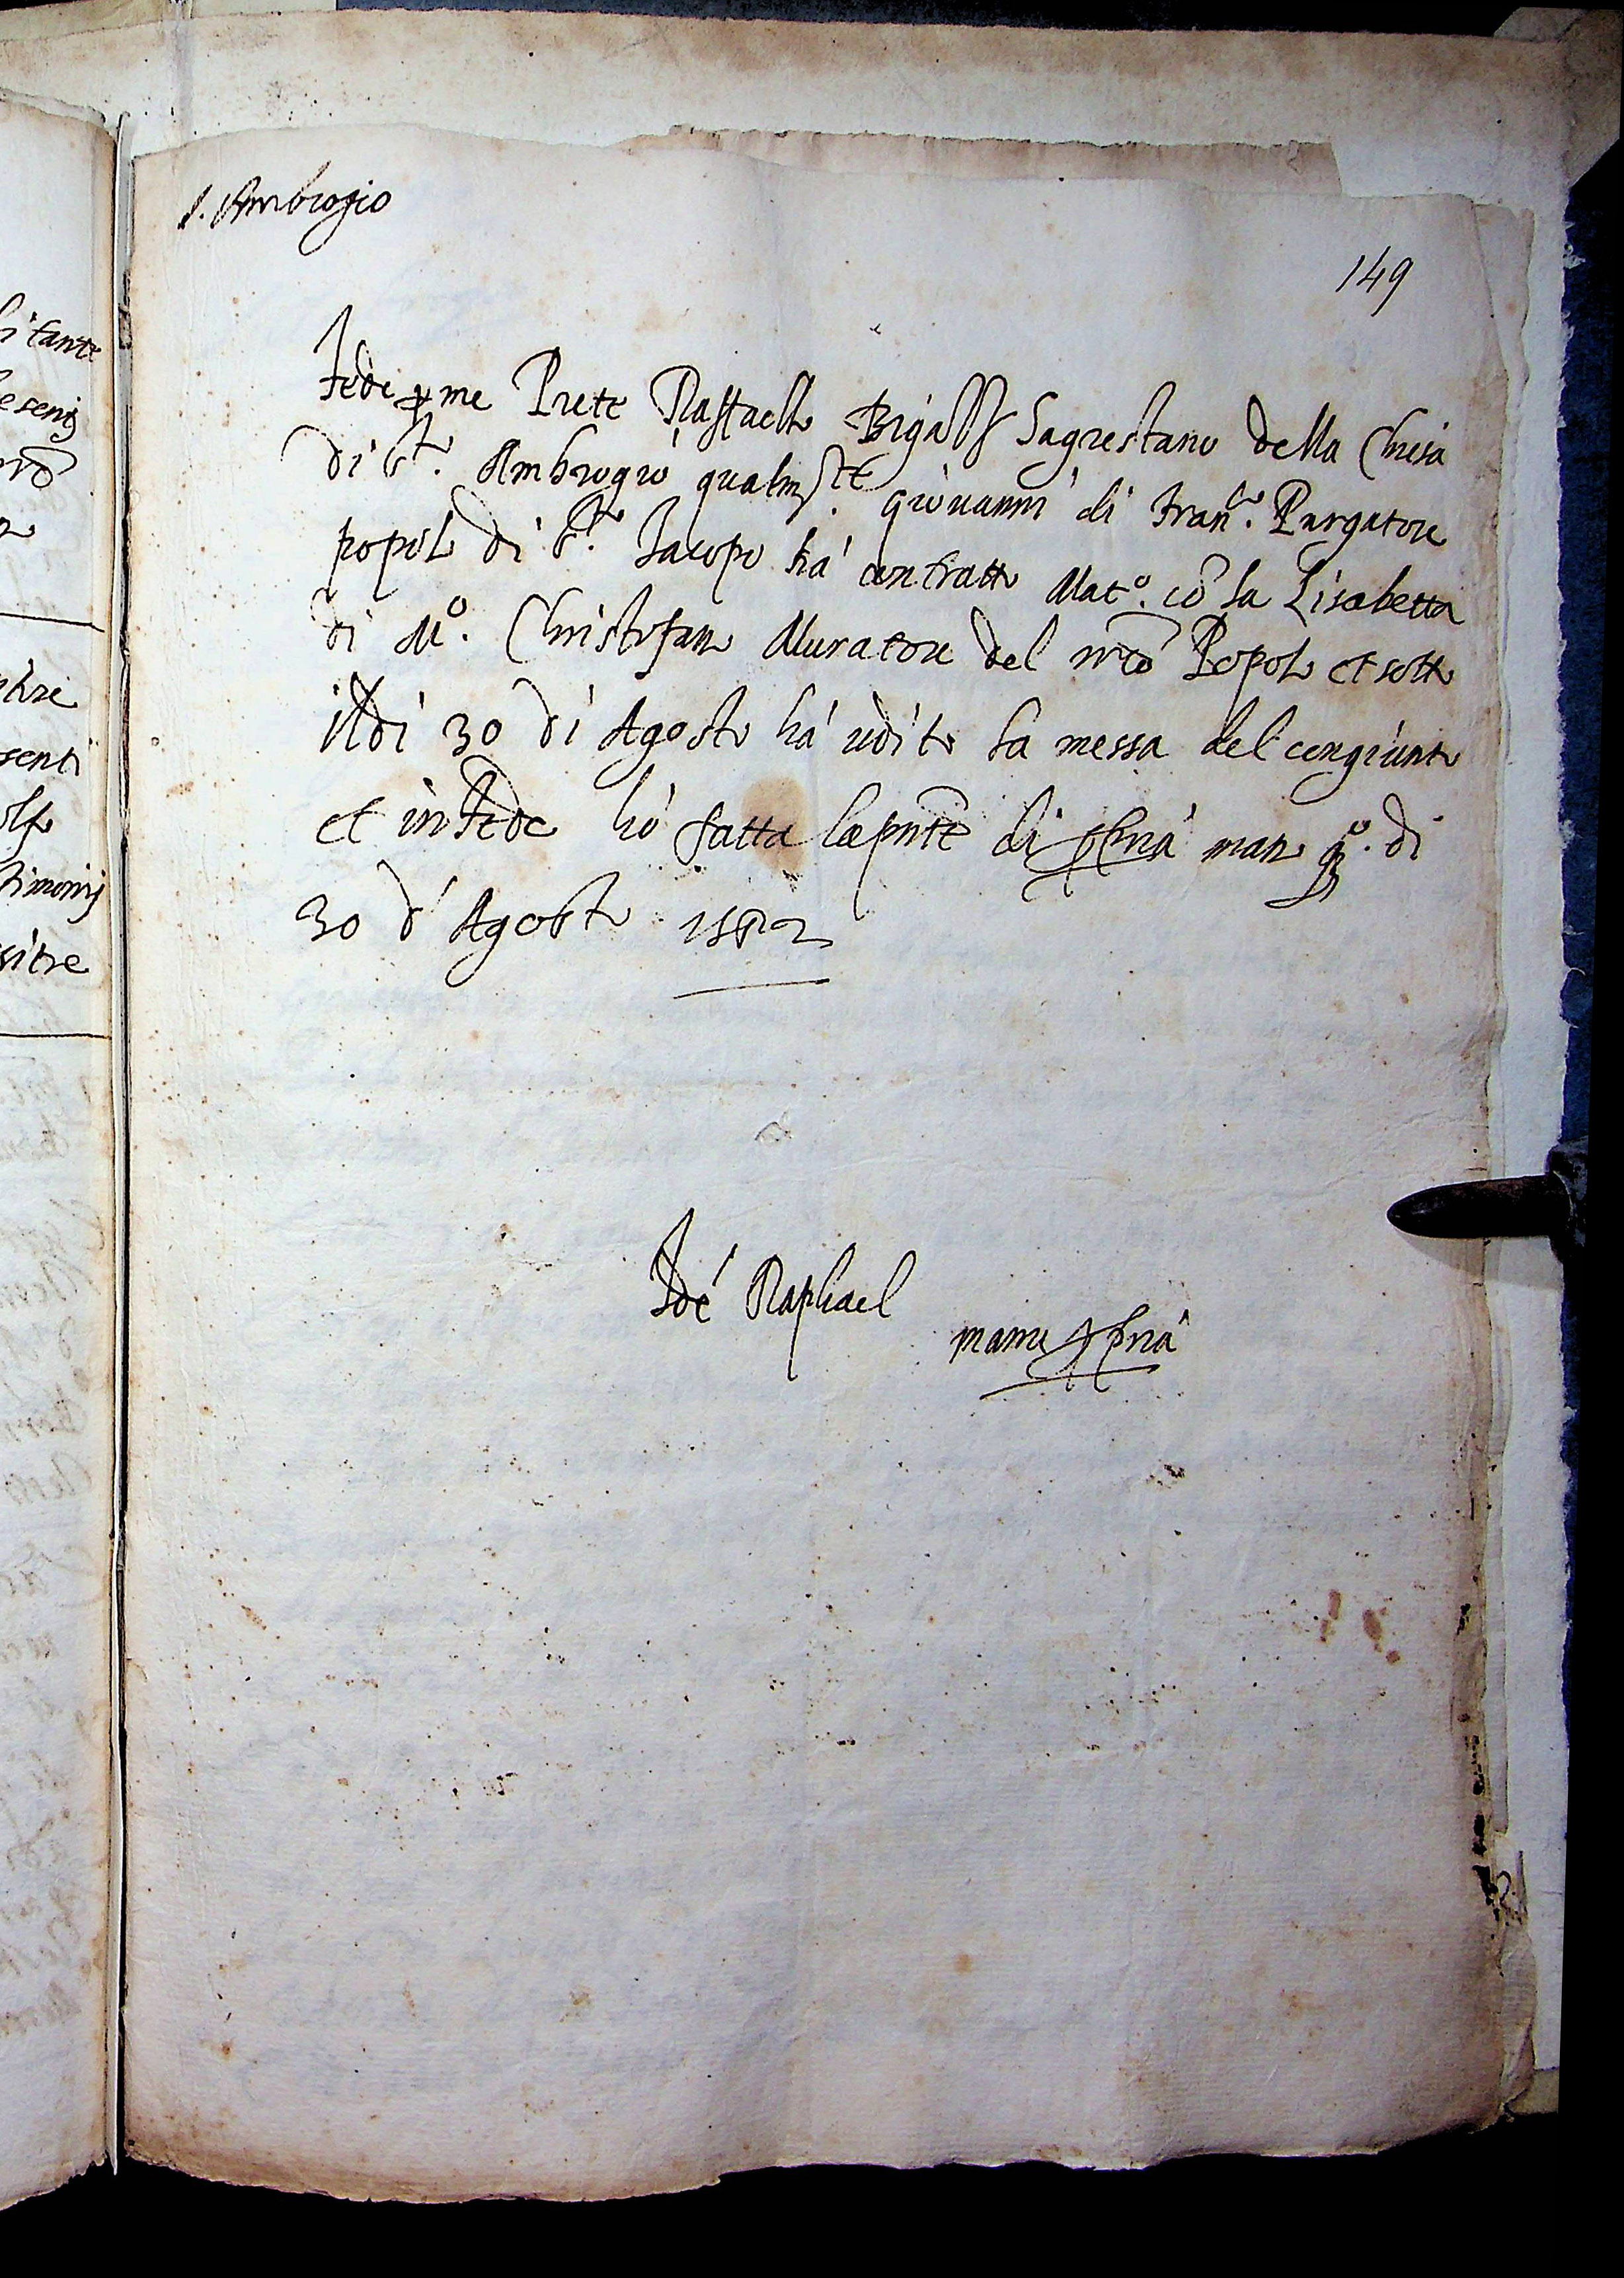 S. Ambrogio
149
Fede p me Prete Raffaello Bigalli Sagrestano della Chiesa
di Sto. Ambrogio qualmte. giovanni di Franco. Purgatore
popolo di Sto. Iacopo há contratto Mato. cō la Lisabetta
di Mo. Christofano Muratore del mēo Popolo et sotto
il di 30 di Agosto há udito la messa del congiunto
et in fede hó fatta la pñte di ppria mano qo. di
30 d' Agosto 1582
Idé Raphael
manu ppria